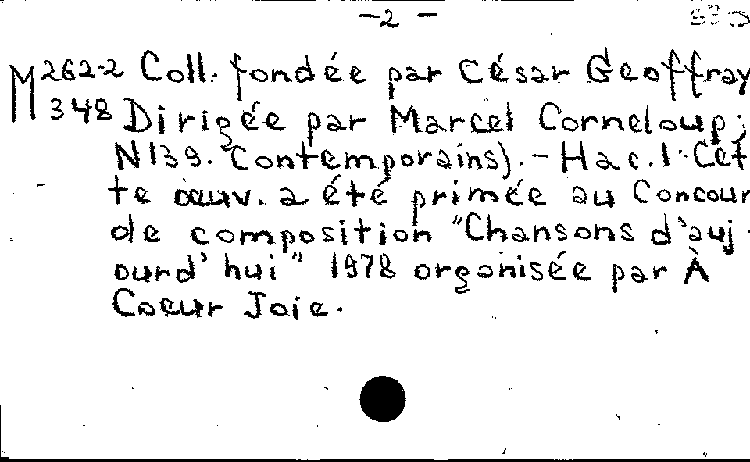 -2-
M 262-2 Coll. fondée par César Geoffray
348 Dirigée par Marcel Corneloup;
N139. Contemporains). - Hac. 1. Cet
te œuv. a été primée au Concour
de composition "Chansons d'auj
ourd'hui" 1978 organisée par À
Coeur Joie.